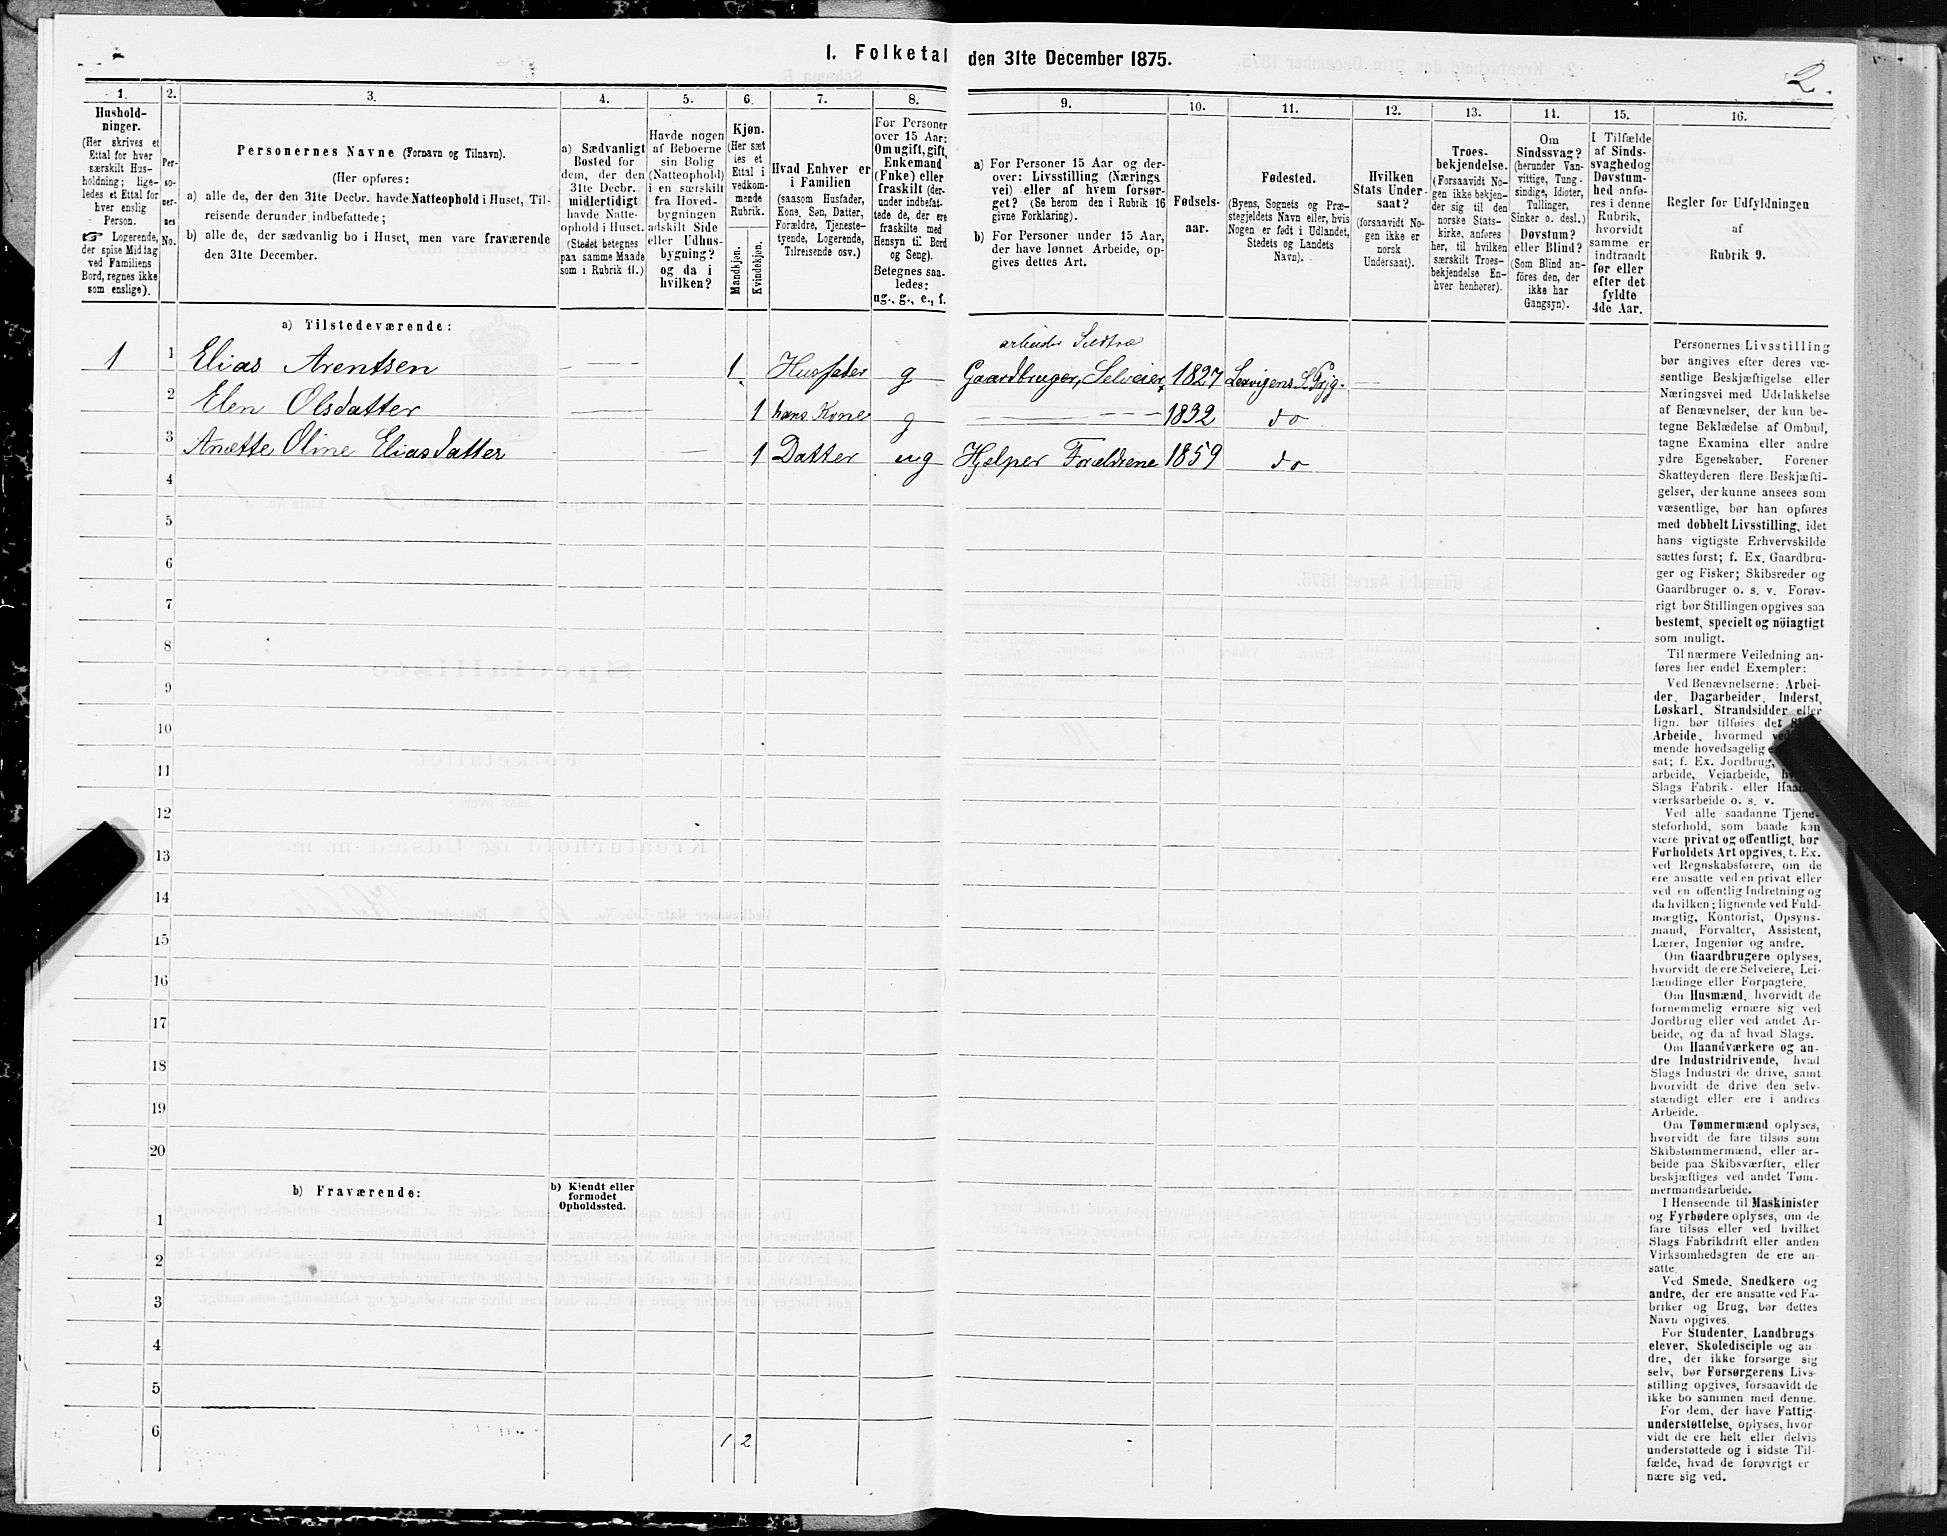 I. Folketal den 31te December 1875.
2.
1.
Hushold-
ninger.
(Her skrives et
Ettal for hver
særskilt Hus-
holdning; lige-
ledes et Ettal for
hver enslig
Person.
☞ Logerende,
der spise Middag
ved Familiens
Bord, regnes ikke
som enslige).
2.
Per-
so-
ner-
nes
No.
3.
Personernes Navne (Fornavn og Tilnavn).
(Her opføres:
a) alle de, der den 31te Decbr. havde Natteophold i Huset, Til-
reisende derunder indbefattede;
b) alle de, der sædvanlig bo i Huset, men vare fraværende
den 31te December.
4.
a) Sædvanligt
Bosted for
dem, der den
31te Decbr.
midlertidigt
havde Natte-
ophold i Huset.
(Stedet betegnes
paa samme Maade
som i Rubrik 11.)
5.
Havde nogen
af Beboerne
sin Bolig
(Natteophold)
i en særskilt
fra Hoved-
bygningen
adskilt Side
eller Udhus-
bygning?
og da i
hvilken?
6.
Kjøn.
(Her sæt
ies et
Ettal i
vedkom-
mende
Rubrik.
Mandkjøn.
Kvindekjøn.
7.
Hvad Enhver er
i Familien
(saasom Husfader,
Kone, Søn, Datter,
Forældre, Tjeneste-
tyende, Logerende,
Tilreisende osv.)
8.
For Personer
over 15 Aar:
Om ugift, gift,
Enkemand
(Enke) eller
fraskilt (der-
under indbefat-
tede de, der ere
fraskilte med
Hensyn til Bord
og Seng).
Betegnes saa-
ledes:
ug., g., e., f.
9.
a) For Personer 15 Aar og der-
over: Livsstilling (Nærings
vei) eller af hvem forsør-
get? (Se herom den i Rubrik 16
givne Forklaring).
b) For Personer under 15 Aar,
der have lønnet Arbeide, op-
gives dettes Art.
10.
Fødsels-
aar.
11.
Fødested.
(Byens, Sognets og Præ-
stegjeldets Navn eller, hvis
Nogen er født i Udlandet,
Stedets og Landets
Navn).
12.
Hvilken
Stats Under-
saat?
(forsaavidt No-
gen ikke er
norsk
Undersaat).
13.
Troes-
bekjendelse.
(Forsaavidt No-
gen ikke bekjen-
der sig til den
norske Stats-
kirke, anføres
her, til hvilken
særskilt Troes-
bekjendelse En-
hver henhører).
14.
Om
Sindssvag?
(herunder Van-
vittige, Tung-
sindige, Idioter,
Tullinger,
Sinker o. desl.)
Døvstum?
eller Blind?
(Som Blind an-
føres den, der
ikke har
Gangsyn).
15.
I Tilfælde
af Sinds-
svaghed og
Døvstum-
hed anfø-
res i denne
Rubrik,
hvorvidt
samme er
indtraadt
før eller
efter det
fyldte
4de Aar.
16.
Regler for Udfyldningen
af
Rubrik 9.
a) Tilstedeværende:
arbeider
1 1 Elias Arentsen — 1. Husfader g Gaardbruger, Selveier, 1827
2 Elen Olsdatter — 1 hans Kone g — 1832 do
3 Anette Oline Eliasdatter — — 1 Datter ug Hjelper Forældrene 1859 do
4
5
6
7
8
9
10
11
12
13
14
15
16
17
18
19
20
b) Fraværende:
b) Kjendt eller
formodet
Opholdssted.
1
2
3
4
5
6
1 2
Personernes Livsstilling
bør angives efter deres væ-
sentlige Beskjæftigelse eller
Næringsvei med Udelukkelse
af Benævnelser, der kun be-
tegne Beklædelse af Ombud,
tagne Examina eller andre
ydre Egenskaber. Forener
Skatteyderen flere Beskjæfti-
gelser, der kunne ansees som
væsentlige, bør han opføres
med dobbelt Livsstilling, idet
hans vigtigste Erhvervskilde
sættes først; f. Ex. Gaardbru-
ger og Fisker; Skibsreder og
Gaardbruger o. s. v. Forøv-
rigt bør Stillingen opgives saa
bestemt, specielt og nöiagtigt
som muligt.
Til nærmere Veiledning an-
føres her endel Exempler:
Ved Benævnelserne: Arbei-
der, Dagarbeider, Inderst,
Løskarl, Strandsidder eller
lign. bør tilføies det
Arbeide, hvormed
mende hovedsagelig
sat; f. Ex. Jordbrug,
arbeide, Veiarbeide,
Slags Fabrik- eller
værksarbeide o. s. v.
Ved alle saadanne Tjene-
steforhold, som baade kan
være privat og offentligt, bør
Forholdets Art opgives, t. Ex.
ved Regnskabsførere, om de
ere ansatte ved en privat eller
ved en offentlig Indretning og
da hvilken; lignende ved Fuld-
mægtig, Kontorist, Opsyns-
mand, Forvalter, Assistent,
Lærer, Ingeniør og andre.
Om Gaardbrugere oplyses,
hvorvidt de ere Selveiere, Lei-
lændinge eller Forpagtere.
Om Husmænd, hvorvidt de
fornemmelig ernære sig ved
Jordbrug eller ved andet Ar-
beide, og da af hvad Slags.
Om Haandværkere og an-
dre Industridrivende, hvad
Slags Industri de drive, samt
hvorvidt de drive den selv-
stændigt eller ere i andres
Arbeide.
Om Tømmermænd oplyses,
hvorvidt de fare tilsøs som
Skibstømmermænd, eller ar-
beide paa Skibsværfter, eller
beskjæftiges ved andet Tøm-
mermandsarbeide.
I Henseende til Maskinister
og Fyrbødere oplyses, om de
fare tilsøs eller ved hvilket
Slags Fabrikdrift eller anden
Virksomhedsgren de ere an-
satte.
Ved Smede, Snedkere og
andre, der ere ansatte ved Fa-
briker og Brug, bør dettes
Navn opgives.
For Studenter, Landbrugs
elever, Skoledisciple og an
dre, der ikke forsørge sig
selv, bør Forsørgerens Livs-
stilling opgives, forsaavidt de
ikke bo sammen med denne.
For dem, der have Fattig
understøttelse, oplyses, hvor-
vidt de ere helt eller delvis
understøttede og i sidste Til-
fælde, hvad de forøvrigt er
nære sig ved.